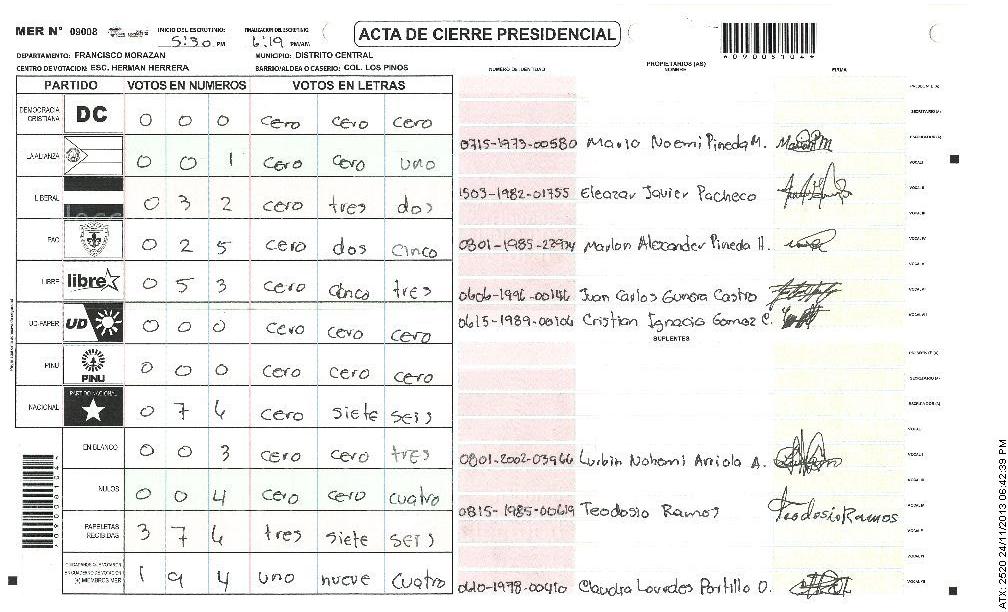 MER N° 09008 INICIO DEL ESCRUTINIO: 5:30 PM FINALIZACION DE ESCRUTINIO: 6:19 PM/AM ACTA DE CIERRE PRESIDENCIAL
DEPARTAMENTO: FRANCISCO MORAZAN MUNICIPIO: DISTRITO CENTRAL
CENTRO DE VOTACION: ESC. HERMAN HERRERA BARRIO/ALDEA O CASERIO: COL. LOS PINOS
NUMERO DE IDENTIDAD PROPIETARIOS (AS) NOMBRE FIRMA
PARTIDO VOTOS EN NUMEROS VOTOS EN LETRAS
DEMOCRACIA CRISTIANA DC 0 0 0 cero cero cero
LA ALIANZA 0 0 1 cero cero uno
LIBERAL 0 3 2 cero tres dos
PAC 0 2 5 cero dos cinco
LIBRE libre 0 5 3 cero cinco tres
UD-FAPER UD 0 0 0 cero cero cero
PINU PINU 0 0 0 cero cero cero
NACIONAL PARTIDO NACIONAL 0 7 6 cero siete seis
EN BLANCO 0 0 3 cero cero tres
NULOS 0 0 4 cero cero cuatro
PAPELETAS RECIBIDAS 3 7 6 tres siete seis
(+) MIEMBROS MER 1 9 4 uno nueve cuatro
0715-1973-00580 Mario Noemi Pineda M.
1503-1982-01755 Eleazar Javier Pacheco
Marlon Alexander Pineda H.
0606-1996-00146 Juan Carlos Gunera Castro
0615-1989-00106 Cristian Ignacio Gomez C.
SUPLENTES
0801-2002-03966 Lurbin Nohemi Arriola A.
0815-1985-00619 Teodosio Ramos Teodosio Ramos
Claudia Lourdes Portillo O.
ATX-2520 24/11/2013 06:42:39 PM